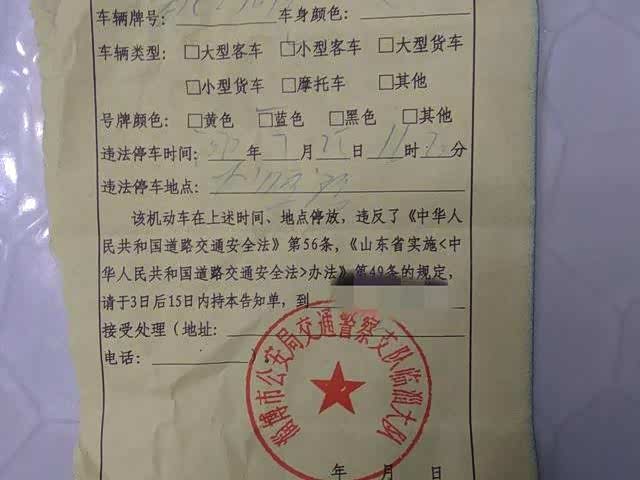 车辆牌号: 车身颜色:
车辆类型: □大型客车 □小型客车 □大型货车
□小型货车 □摩托车 □其他
号牌颜色: □黄色 □蓝色 □黑色 □其他
违法停车时间: 年 7 月 日 11 时 分
违法停车地点:
该机动车在上述时间、地点停放，违反了《中华人
民共和国道路交通安全法》第56条，《山东省实施<中
华人民共和国道路交通安全法>办法》第49条的规定，
请于3日后15日内持本告知单，到
接受处理（地址:
电话:
淄博市公安局交通警察支队临淄大队
年 月 日